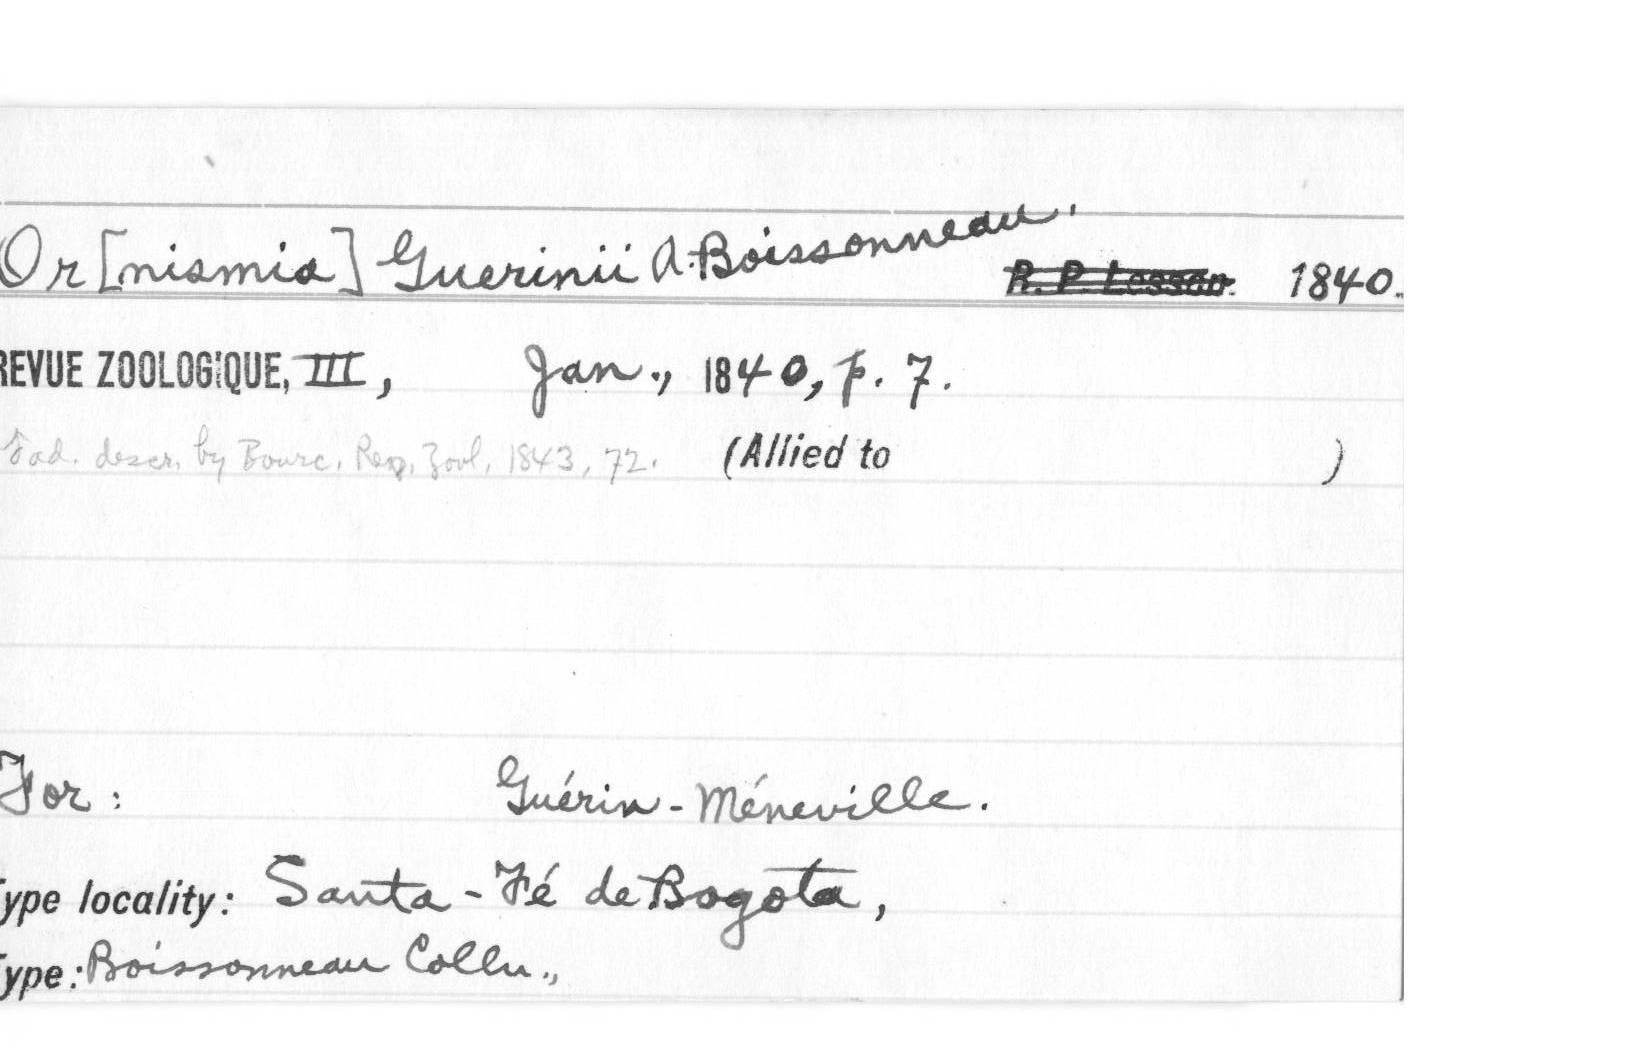 Or[nismia] Guerinii A. Boissonneau. R. P. Lesson. 1840.
REVUE ZOOLOGIQUE, III, Jan., 1840, p. 7.
♀ad. descr. by Bourc. Rev. Zool, 1843, 72. (Allied to )
For: Guérin-Méneville.
Type locality: Santa-Fé de Bogota,
Type: Boissonneau Colln.,